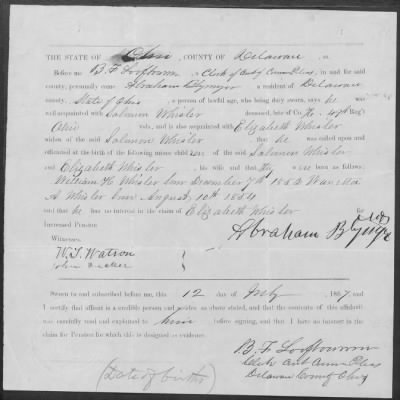 THE STATE OF Ohio, COUNTY OF Delaware, ss.
Before me B. F. Loofbourrow, Clerk of Court of Com Pleas, in and for said
county, personally came Abraham Blymyer a resident of Delaware
county, State of Ohio, a person of lawful age, who being duly sworn, says he was
well acquainted with Salmon Whisler deceased, late of Co. 40th Reg't
Ohio vols, and is also acquainted with Elizabeth Whisler
widow of the said Salmon Whisler, that he was called upon and
officiated at the birth of the following minor children of the said Salmon Whisler
and Elizabeth Whisler, his wife and that they were born as follows.
William H Whisler born December 7th 1852
A Whisler born August 10th 1854
and he has no interest in the claim of Elizabeth Whisler for
Increased Pension.
Witnesses.
Abraham
W. T. Watson
Sworn to and subscribed before me, this 12 day of July, 1867 and
I certify that affiant is a credible person and resides as above stated, and that the contents of this affidavit
was carefully read and explained to him before signing, and that I have no interest in the
claim for Pension for which this is designed as evidence.
B. F. Loofbourrow
Clerk Court Com Pleas
Delaware County Ohio
(Date of births)